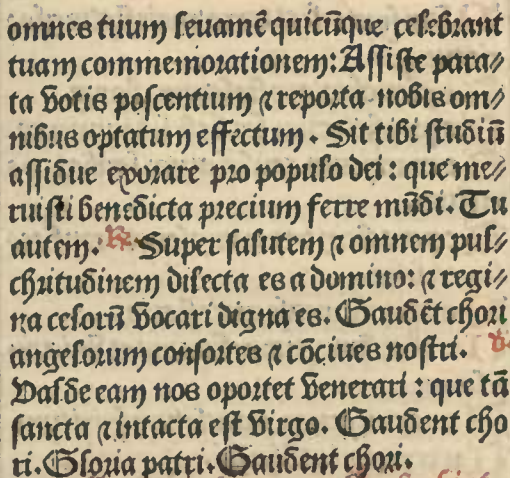 omnes tuum leuamē quicūque celebrant
tuam commemorationem: Assiste para⸗
ta votis poscentium ⁊ reporta nobis om⸗
nibus optatum effectum. Sit tibi studiū
assidue exorare pro populo dei: que me⸗
ruisti benedicta precium ferre mūdi. Tu
autem. ℟ Super salutem ⁊ omnem pul⸗
chritudinem dilecta es a domino: ⁊ regi⸗
na celorū vocari digna es. Gaudēt chori
angelorum consortes ⁊ cōciues nostri. ℣
Valde eam nos oportet venerari: que tā
sancta ⁊ intacta est virgo. Gaudent cho
ri. Gloria patri. Gaudent chori.